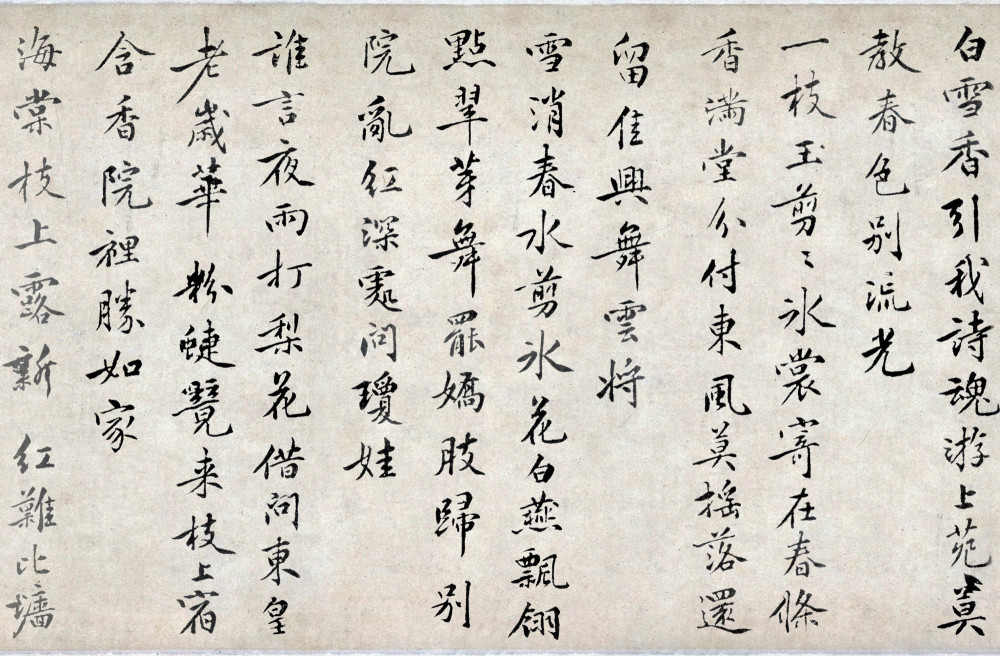 白雪香引我詩魂游上苑莫
教春色別流光
一枝玉剪剪冰裳寄在春條
香滿堂分付東風莫摇落還
留佳興舞雲将
雪消春水剪冰花白燕飄翎
點翠芽舞罷嬌肢歸別
院亂紅深處问瓊娃
誰言夜雨打梨花借问東皇
老歲華 粉蜨覽来枝上宿
含香院裡勝如家
海棠枝上露新 红難比